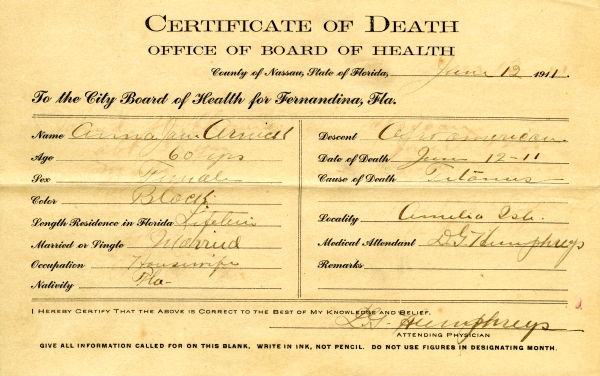 CERTIFICATE OF DEATH
OFFICE OF BOARD OF HEALTH
County of Nassau, State of Florida, June 12 1911.
To the City Board of Health for Fernandina, Fla.
Name Anna Jane
Age 60 yrs
Sex Female
Color Black
Length Residence in Florida Lifetime
Married or Single Married
Occupation Housewife
Nativity Fla-
Descent Afro american
Date of Death June 12-11
Cause of Death Titanus
Locality Amelia Isl.
Medical Attendant D.G. Humphreys
Remarks
I HEREBY CERTIFY THAT THE ABOVE IS CORRECT TO THE BEST OF MY KNOWLEDGE AND BELIEF.
D.G. Humphreys
ATTENDING PHYSICIAN
GIVE ALL INFORMATION CALLED FOR ON THIS BLANK. WRITE IN INK, NOT PENCIL. DO NOT USE FIGURES IN DESIGNATING MONTH.